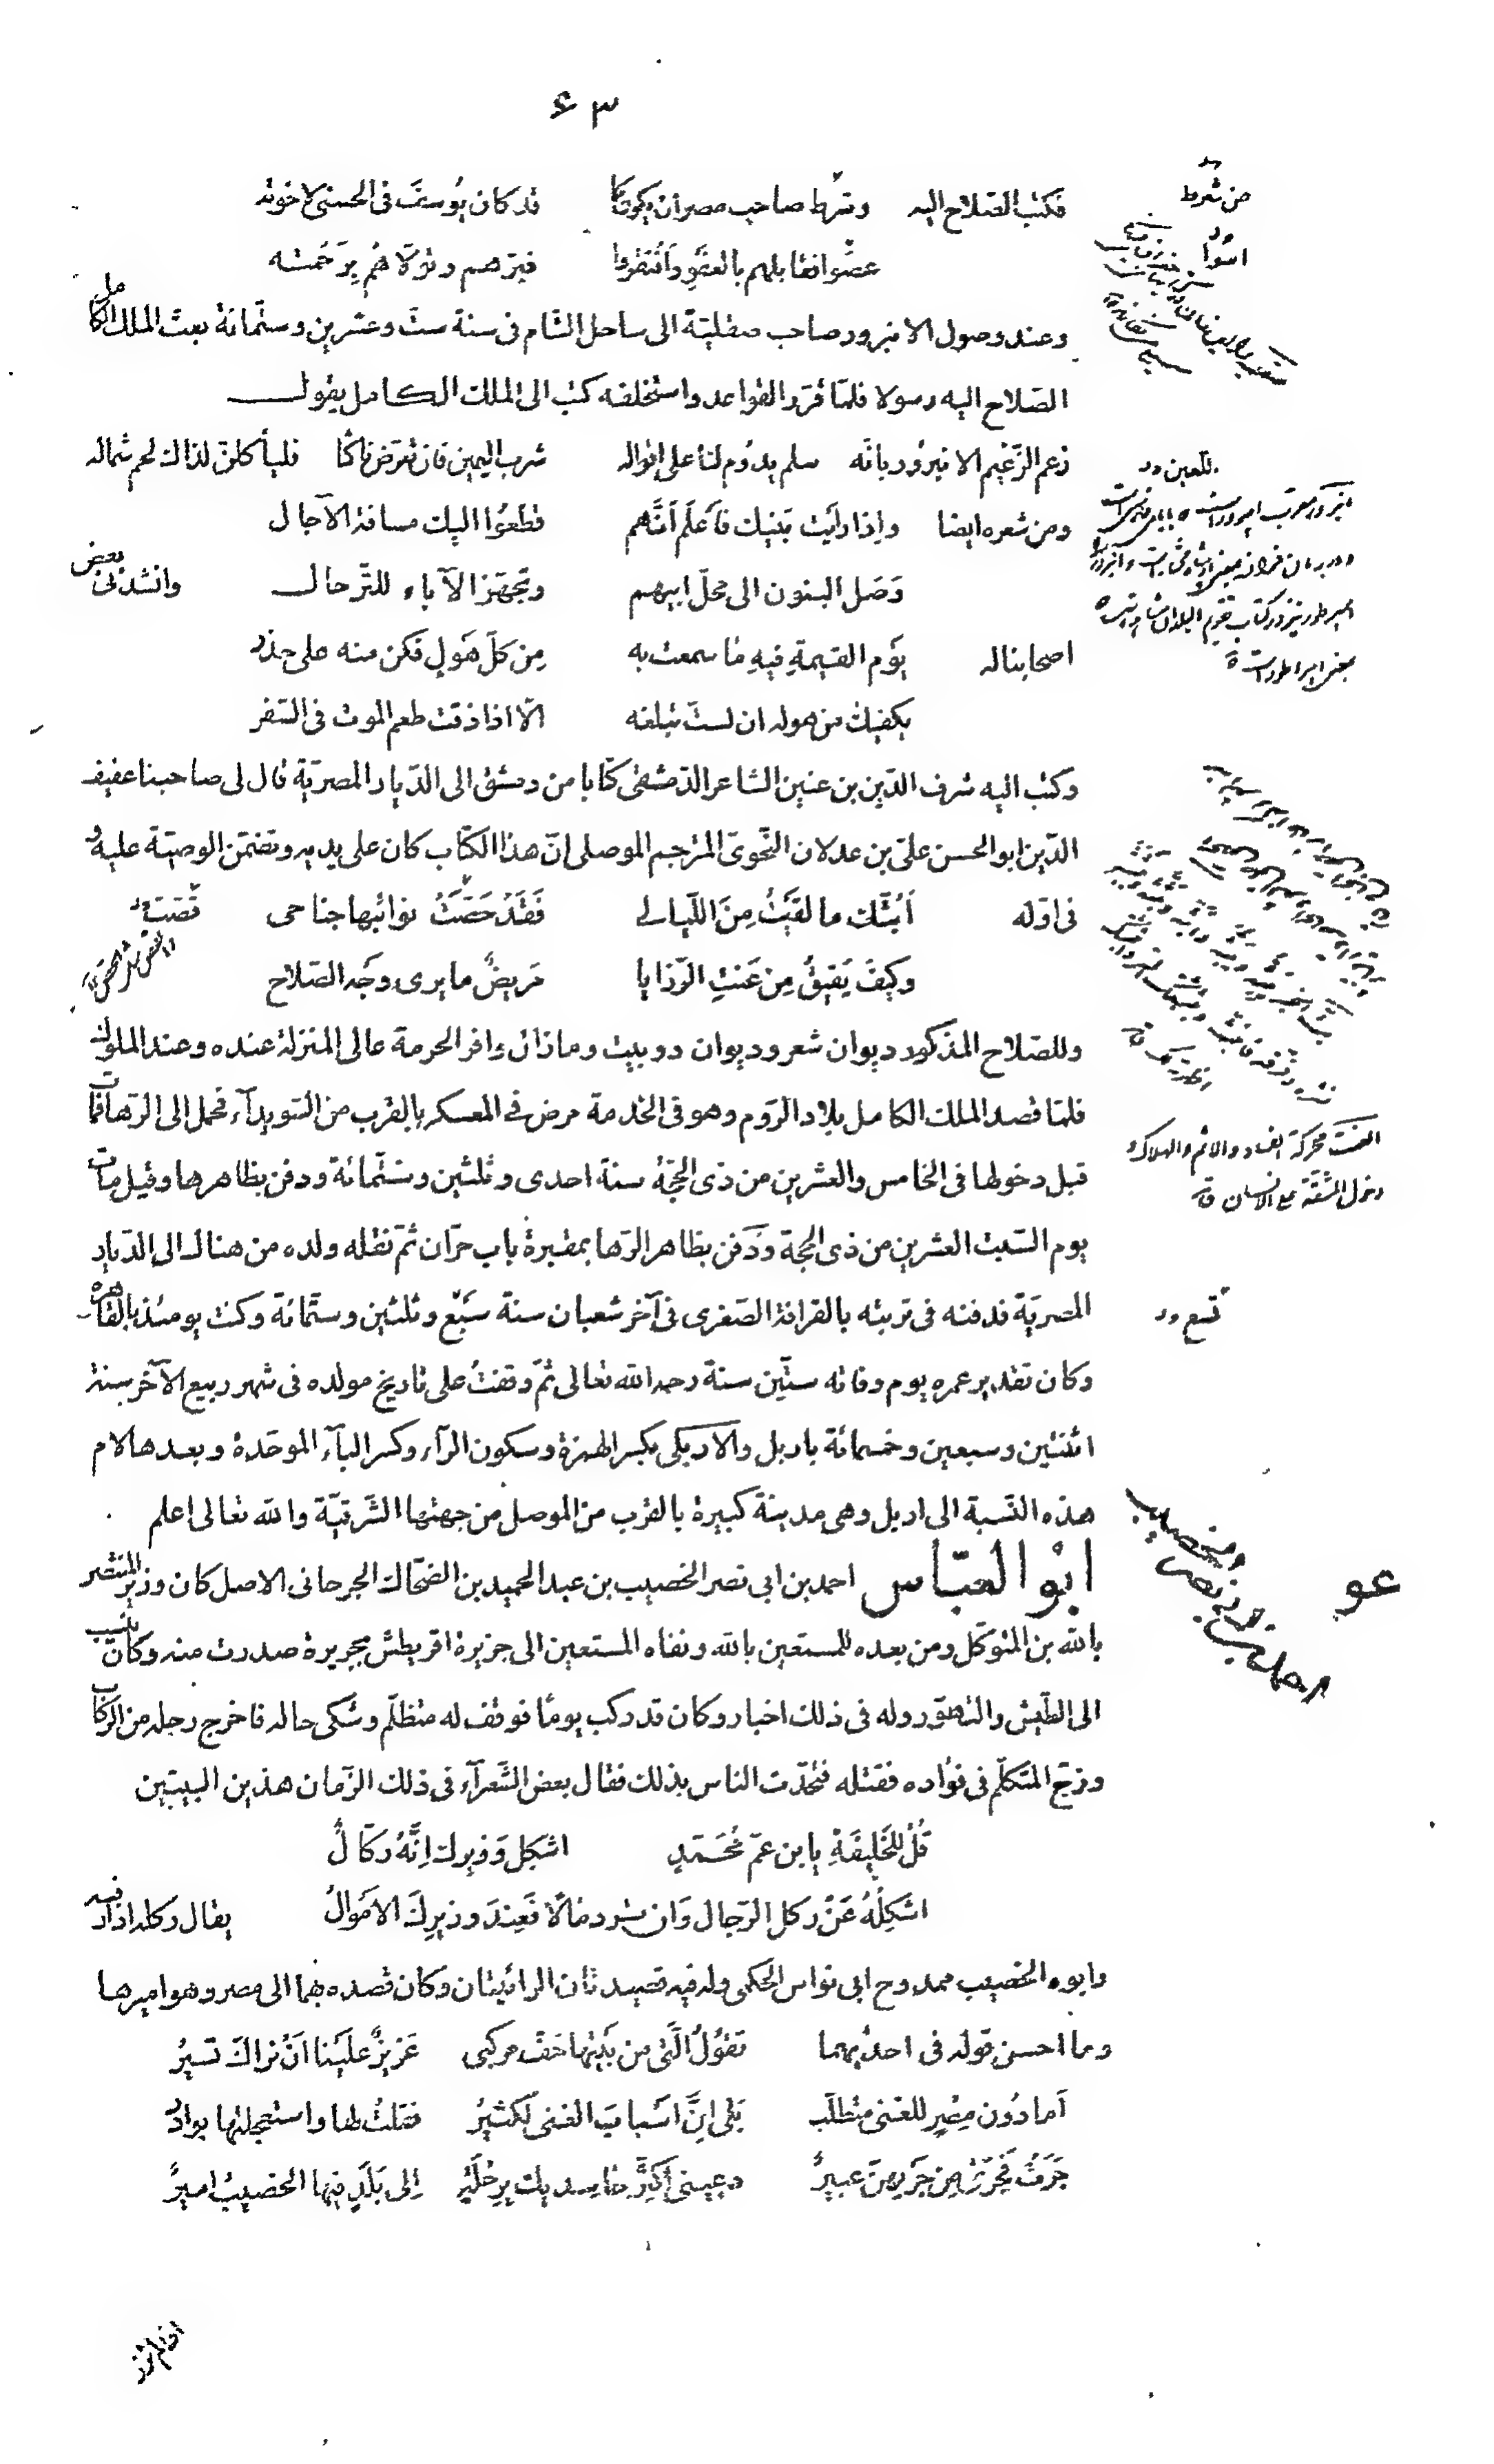 ٦٣
فكتب الصلاح اليه وشرط صاحب مصر ان يكون كما قد كان يوسف فى الحسنى لاخوته
عصوا فقابلهم بالعفو وافتقروا فبرهم وتولاهم برحمته
وعند وصول الانبرور صاحب صقلية الى ساحل الشام فى سنة ست وعشرين وستمائة بعث الملك الكامل
الصلاح اليه رسولا فلما قرر القواعد واستحلفه كتب الى الملك الكامل يقول
زعم الزعيم الانبرور بانه سلم يدوم لنا على اقواله شرب اليمين فان تعرض ناكثا فلياكلن لذاك لحم شماله
ومن شعره ايضا واذا رايت بنيك فاعلم انهم قطعوا اليك مسافة الآجال
وصل البنون الى محل ابيهم وتجهز الآباء للترحال وانشدنى بعض
اصحابنا له يوم القيمة فيه ما سمعت به من كل هول فكن منه على حذر
يكفيك من هوله ان لست تبلغه الا اذا ذقت طعم الموت فى السفر
وكتب اليه شرف الدين بن عنين الشاعر الدمشقى كتابا من دمشق الى الديار المصرية قال لى صاحبنا عفيف
الدين ابو الحسن على بن عدلان النحوى المترجم الموصلى ان هذا الكتاب كان على يديه وتضمن الوصية عليه و
فى اوله ابثك ما لقيت من الليالى فقد حصت نوائبها جناحى قصت
وكيف يفيق من عنت الرزايا مريض ما يرى وجه الصلاح
وللصلاح المذكور ديوان شعر وديوان دوبيت وما زال وافر الحرمة عالى المنزلة عنده وعند الملوك
فلما قصد الملك الكامل بلاد الروم وهو فى الخدمة مرض فى المعسكر بالقرب من السويداء فحمل الى الرها فمات
قبل دخولها فى الخامس والعشرين من ذى الحجة سنة احدى وثلثين وستمائة ودفن بظاهرها وقيل مات
يوم السبت العشرين من ذى الحجة ودفن بظاهر الرها بمقبرة باب حران ثم نقله ولده من هناك الى الديار
المصرية فدفنه فى تربته بالقرافة الصغرى فى آخر شعبان سنة سبع وثلثين وستمائة وكنت يومئذ بالقاهرة
وكان تقدير عمره يوم وفاته ستين سنة رحمه الله تعالى ثم وقفت على تاريخ مولده فى شهر ربيع الآخر سنة
اثنتين وسبعين وخمسمائة باربل والاربلى بكسر الهمزة وسكون الراء وكسر الباء الموحدة وبعدها لام
هذه النسبة الى اربل وهى مدينة كبيرة بالقرب من الموصل من جهتها الشرقية والله تعالى اعلم
ابو العباس احمد بن ابى نصر الخصيب بن عبد الحميد بن الضحاك الجرجانى الاصل كان وزير المنتصر
بالله بن المتوكل ومن بعده للمستعين بالله ونفاه المستعين الى جزيرة اقريطش بجريرة صدرت منه وكان ينسب
الى الطيش والتهور وله فى ذلك اخبار وكان قد ركب يوما فوقف له متظلم وشكى حاله فاخرج رجله من الركاب
وزج المتكلم فى فؤاده فقتله فتحدث الناس بذلك فقال بعض الشعراء فى ذلك الزمان هذين البيتين
قل للخليفة يا ابن عم محمد اشكل وزيرك انه ركال
اشكله عن ركل الرجال وان ترد مالا فعند وزيرك الاموال يقال ركله اذا رفسه
وابوه الخصيب ممدوح ابى نواس الحكمى وله فيه قصيدتان الرائيتان وكان قصده بهما الى مصر وهو اميرها
وما احسن قوله فى احديهما تقول التى من بيتها خف مركبى عزيز علينا ان نراك تسير
اما دون مصر للغنى متطلب بلى ان اسباب الغنى لكثير فقلت لها واستعجلتها بوادر
جرت فجرى من جريهن عبير دعينى اكثر حاسديك برحلة الى بلد فيها الخصيب امير
من شرط
اسوا
للعين در
العنت محركة الفساد والاثم والهلاك و
دخول المشقة على الانسان ق
تسع در
عو
احمد بن ابى نصر الخصيب